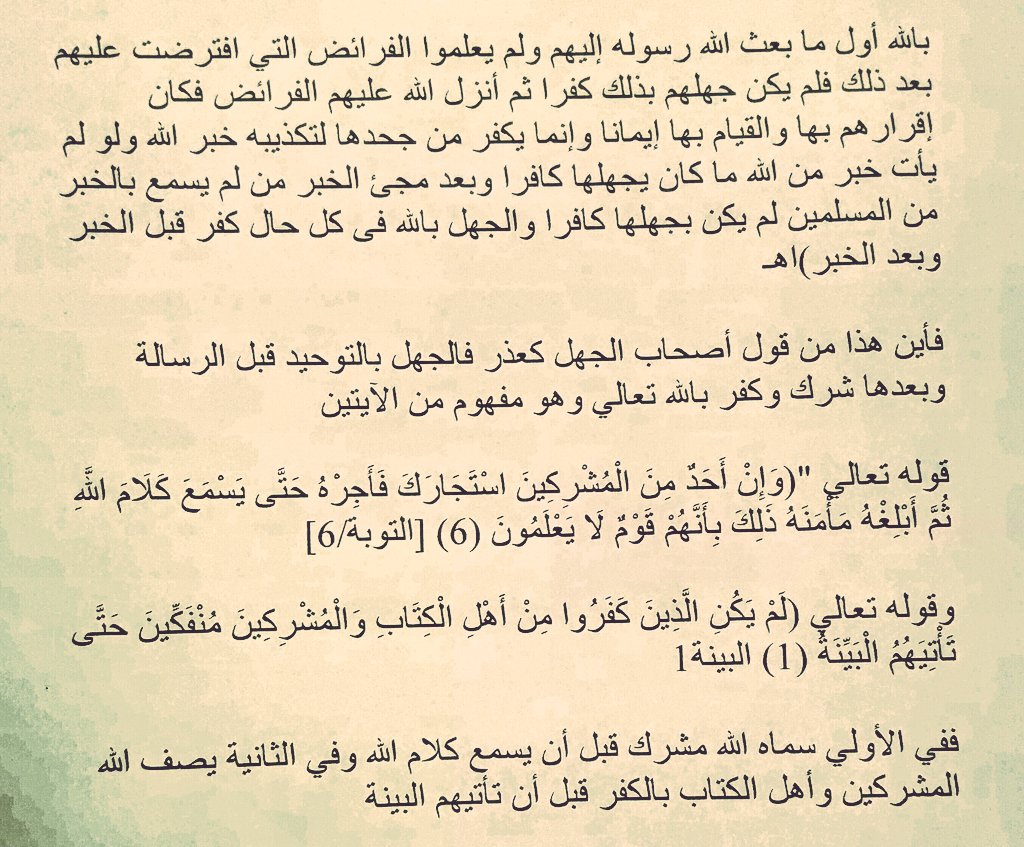 بالله أول ما بعث الله رسوله إليهم ولم يعلموا الفرائض التي افترضت عليهم
بعد ذلك فلم يكن جهلهم بذلك كفرا ثم أنزل الله عليهم الفرائض فكان
إقرارهم بها والقيام بها إيمانا وإنما يكفر من جحدها لتكذيبه خبر الله ولو لم
يأت خبر من الله ما كان يجهلها كافرا وبعد مجئ الخبر من لم يسمع بالخبر
من المسلمين لم يكن بجهلها كافرا والجهل بالله فى كل حال كفر قبل الخبر
وبعد الخبر)اهـ
فأين هذا من قول أصحاب الجهل كعذر فالجهل بالتوحيد قبل الرسالة
وبعدها شرك وكفر بالله تعالي وهو مفهوم من الآيتين
قوله تعالي "(وَإِنْ أَحَدٌ مِنَ الْمُشْرِكِينَ اسْتَجَارَكَ فَأَجِرْهُ حَتَّى يَسْمَعَ كَلَامَ اللَّهِ
ثُمَّ أَبْلِغْهُ مَأْمَنَهُ ذَلِكَ بِأَنَّهُمْ قَوْمٌ لَا يَعْلَمُونَ (6) [التوبة/6]
وقوله تعالي (لَمْ يَكُنِ الَّذِينَ كَفَرُوا مِنْ أَهْلِ الْكِتَابِ وَالْمُشْرِكِينَ مُنْفَكِّينَ حَتَّى
تَأْتِيَهُمُ الْبَيِّنَةُ (1) البينة1
ففي الأولي سماه الله مشرك قبل أن يسمع كلام الله وفي الثانية يصف الله
المشركين وأهل الكتاب بالكفر قبل أن تأتيهم البينة